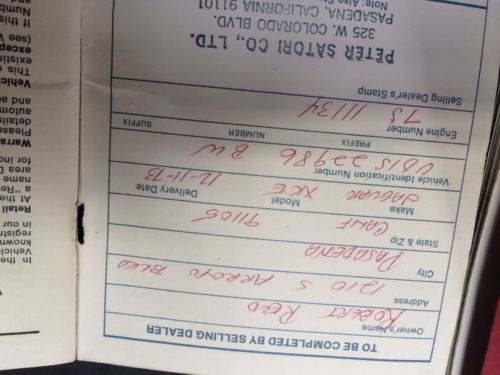 TO BE COMPLETED BY SELLING DEALER
Owner's Name
ROBERT REED
Address
1210 S ARROYO BLVD
City
PASADENA
State & Zip
CALIF 91105
Make Model Delivery Date
JAGUAR XKE 12-11-73
Vehicle Identification Number
UD1S 22986 BW
PREFIX NUMBER SUFFIX
Engine Number
7S 11134
Selling Dealer's Stamp
PETER SATORI CO., LTD.
325 W. COLORADO BLVD.
PASADENA, CALIFORNIA 91101
Note: Also St
In the
Vehicle
known
registr
in our
Retail
At the
a "Re
name
area D
for inc
Warra
Please
details
automo
and ac
Vehic
This d
existin
excep
(see V
If this
Number
and